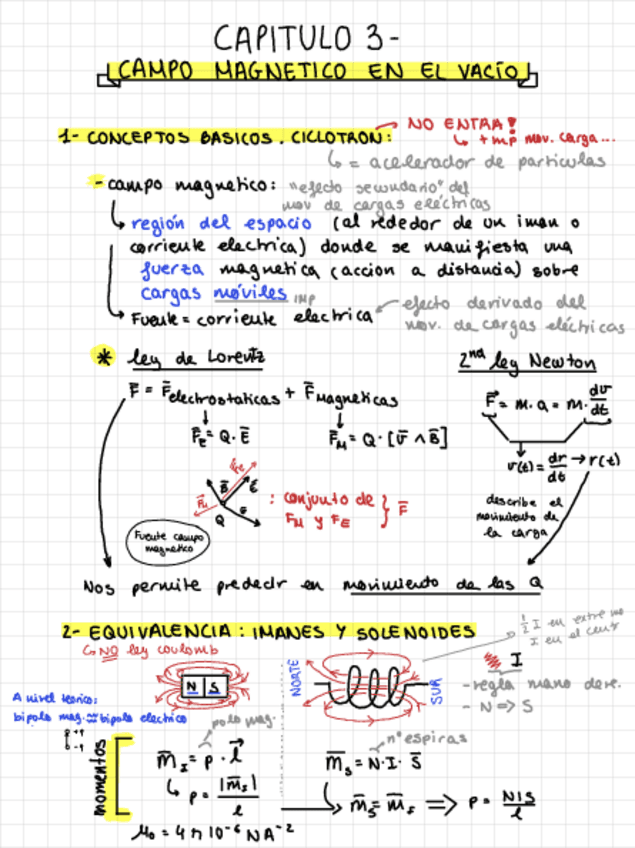 CAPITULO 3-
CAMPO MAGNETICO EN EL VACÍO
1- CONCEPTOS BASICOS. CICLOTRON: → NO ENTRA!
↳ + imp mov. carga...
↳ = acelerador de particulas
- campo magnetico: "efecto secundario" del
mov de cargas eléctricas
↳ región del espacio (al rededor de un iman o
corriente electrica) donde se manifiesta una
fuerza magnetica (accion a distancia) sobre
cargas móviles IMP
↳ Fuente = corriente electrica ← efecto derivado del
mov. de cargas eléctricas
* ley de Lorentz
2nd ley Newton
F̄ = F̄electrostaticas + F̄Magneticas
F̄E = Q · Ē
F̄M = Q · [v̄ ∧ B̄]
F⃗ = m · a = m · dv̄/dt
v(t) = dr/dt → r(t)
describe el
movimiento de
la carga
F̄e
B̄ Ē
F̄M
Q v̄
: conjunto de
FM y FE } F̄
Fuente campo
magnetico
Nos permite predecir en movimiento de las Q
2- EQUIVALENCIA: IMANES Y SOLENOIDES
↳ NO ley coulomb
1/2 I en extremo
I en el centr
N S
NORTE
SUR
I
- regla mano dere.
- N => S
A nivel teorico:
bipolo mag. ≈ bipolo electrico
polo mag.
nº espiras
momentos
m̄I = p · l⃗
↳ p = |m̄I| / l
m̄S = N · I · S̄
m̄S = m̄I => p = NIS / l
μ0 = 4π10⁻⁶ NA⁻²